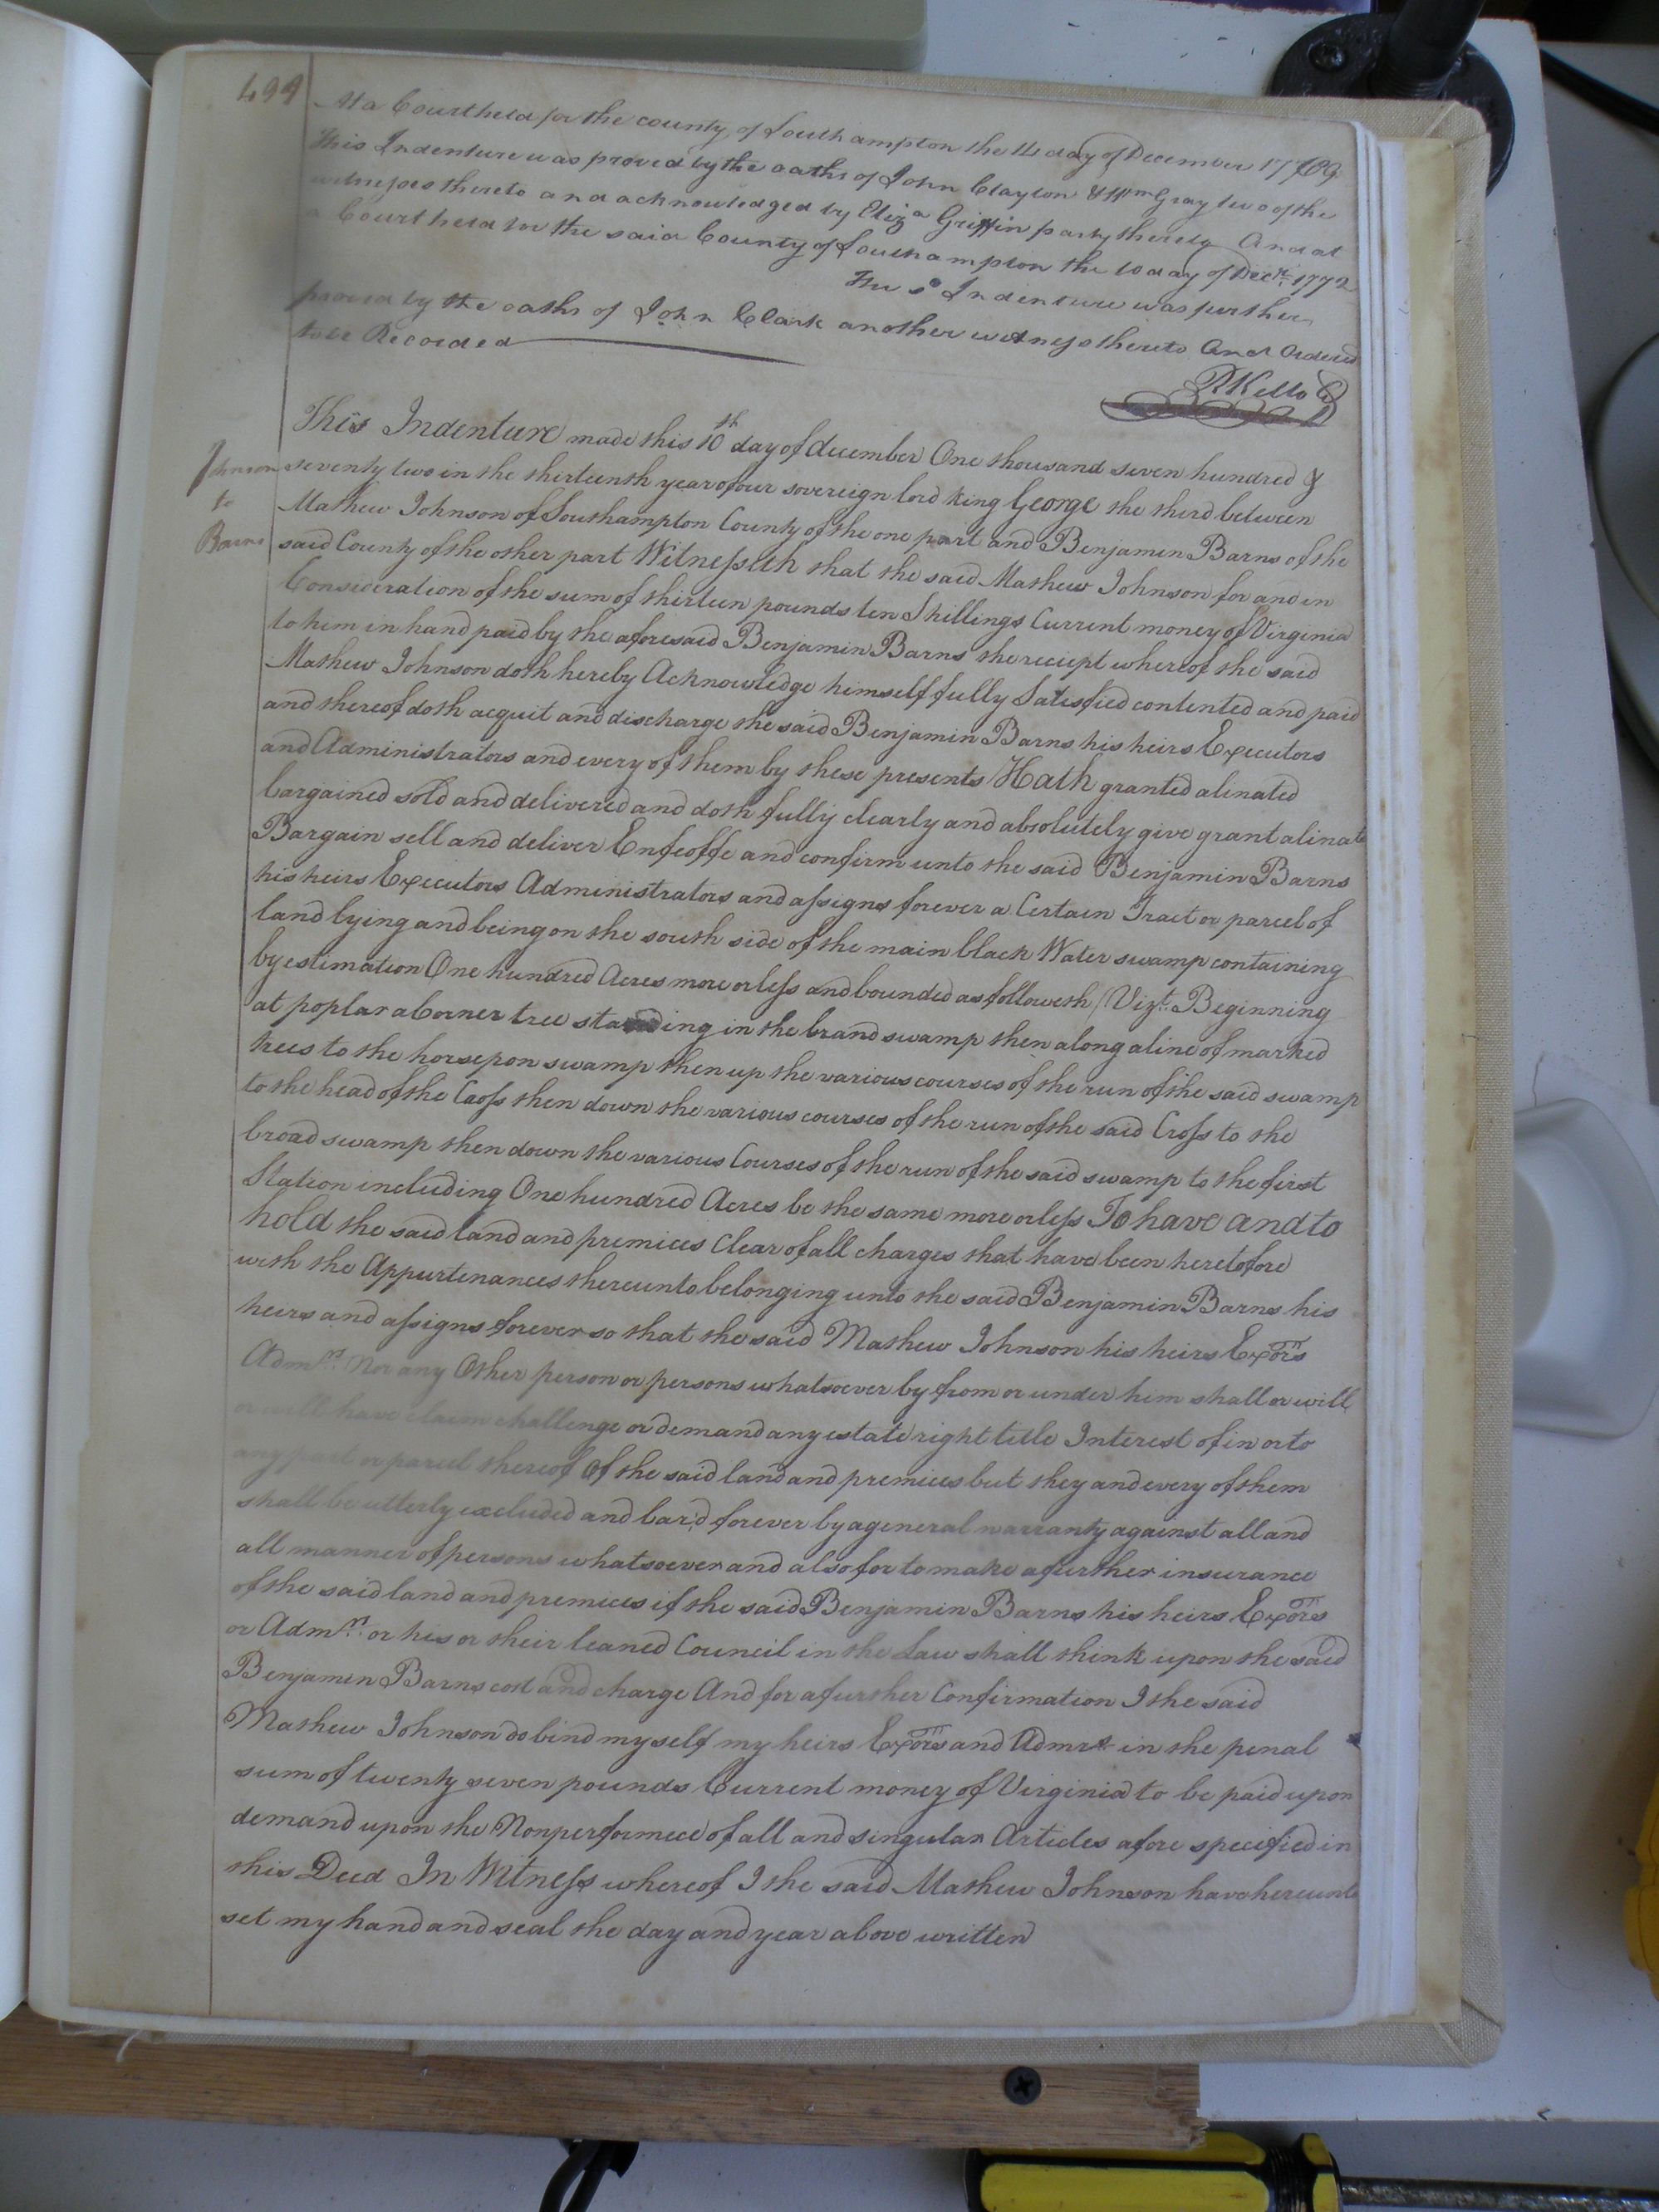 499
At a Court held for the county of Southampton the 14 day of December 1769
This Indenture was proved by the oaths of John Clayton & Wm Gray two of the
witnesses thereto and acknowledged by Eliza Griffin party thereto And at
a Court held for the said County of Southampton the 10 day of Decr. 1772
The sd Indenture was further
proved by the oaths of John Clark another witness thereto And Ordered
to be Recorded
R Kello C
Johnson
to
Barns
This Indenture made this 10th day of december One thousand seven hundred &
seventy two in the thirteenth year of our sovereign lord King George the third between
Mathew Johnson of Southampton County of the one part and Benjamin Barns of the
said County of the other part Witnesseth that the said Mathew Johnson for and in
Consideration of the sum of thirteen pounds ten Shillings Current money of Virginia
to him in hand paid by the aforesaid Benjamin Barns the reciept whereof the said
Mathew Johnson doth hereby Acknowledge himself fully Satisfied contented and paid
and thereof doth acquit and discharge the said Benjamin Barns his heirs Executors
and Administrators and every of them by these presents Hath granted alinated
bargained sold and delivered and doth fully clearly and absolutely give grant alinate
Bargain sell and deliver Enfeoffe and confirm unto the said Benjamin Barns
his heirs Executors Administrators and assigns forever a Certain Tract or parcel of
land lying and being on the south side of the main black Water swamp containing
by estimation One hundred Acres more or less and bounded as followeth (Vizt. Beginning
at poplar a Corner tree standing in the brand swamp then along a line of marked
trees to the horsepon swamp then up the various courses of the run of the said swamp
to the head of the Cross then down the various courses of the run of the said Cross to the
broad swamp then down the various Courses of the run of the said swamp to the first
Station including One hundred Acres be the same more or less To have and to
hold the said land and premices Clear of all charges that have been heretofore
with the Appurtenances thereunto belonging unto the said Benjamin Barns his
heirs and assigns forever so that the said Mathew Johnson his heirs Exors
Admrs. Nor any Other person or persons whatsoever by from or under him shall or will
or will have claim challenge or demand any estate right title Interest of in or to
any part or parcel thereof Of the said land and premices but they and every of them
shall be utterly excluded and bar'd forever by a general warranty against all and
all manner of persons whatsoever and also for to make a further insurance
of the said land and premices if the said Benjamin Barns his heirs Exors
or Admrs. or his or their leaned Council in the Law shall think upon the said
Benjamin Barns cost and charge And for a further Confirmation I the said
Mathew Johnson do bind myself my heirs Exors and Admrs in the penal
sum of twenty seven pounds Current money of Virginia to be paid upon
demand upon the Nonperformece of all and singular Articles afore specified in
this Deed In Witness whereof I the said Mathew Johnson have hereunto
set my hand and seal the day and year above written